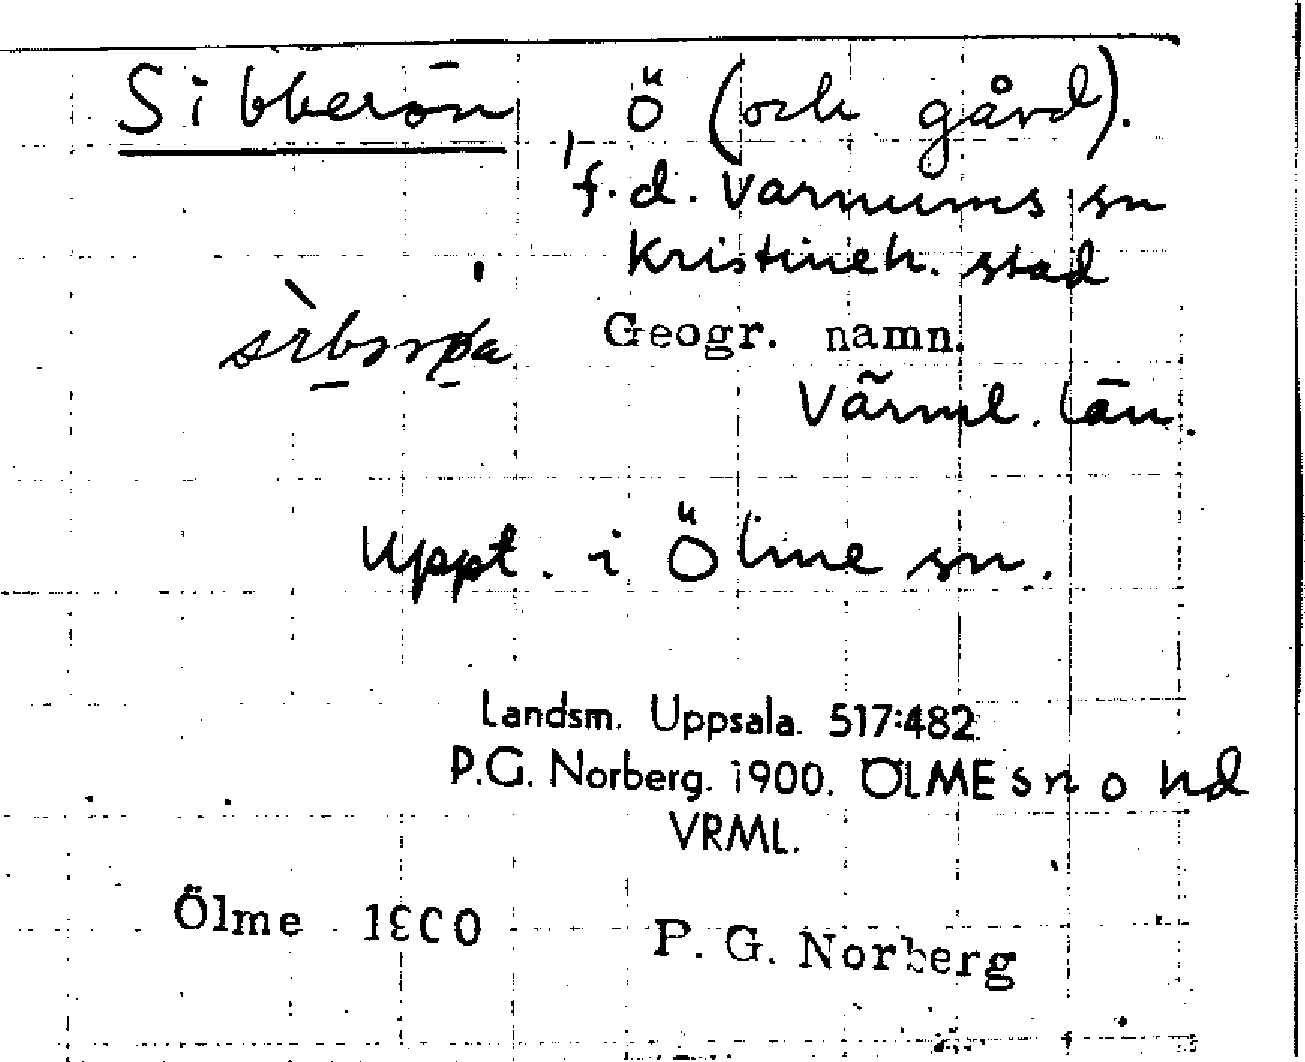 Sibberön, ö (och gård).
f.d. Varnums sn
Kristineh. stad
Geogr. namn.
Värml. län.
Uppt. i Ölme sn.
Landsm. Uppsala. 517:482
P.G. Norberg. 1900. ÖLME sn o hd
VRML.
Ölme 1900 P. G. Norberg